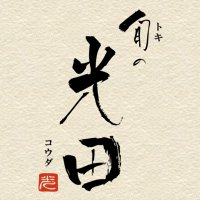 旬の
トキ
光田
コウダ
光